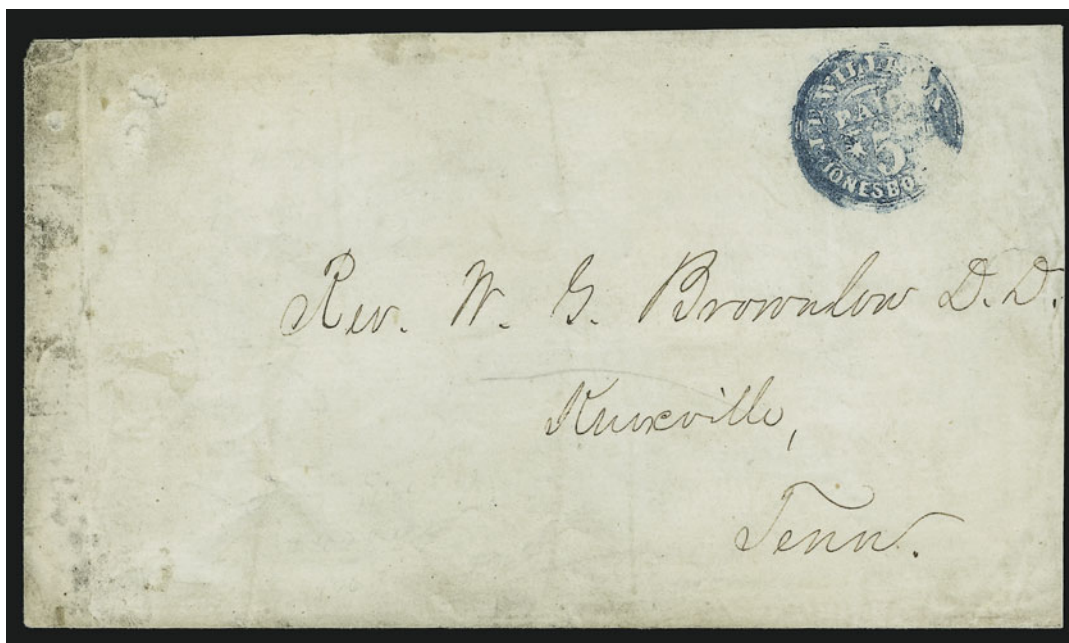 PAI
5
JONESBO
Rev. W. G. Brownlow D.D.
Knoxville,
Tenn.